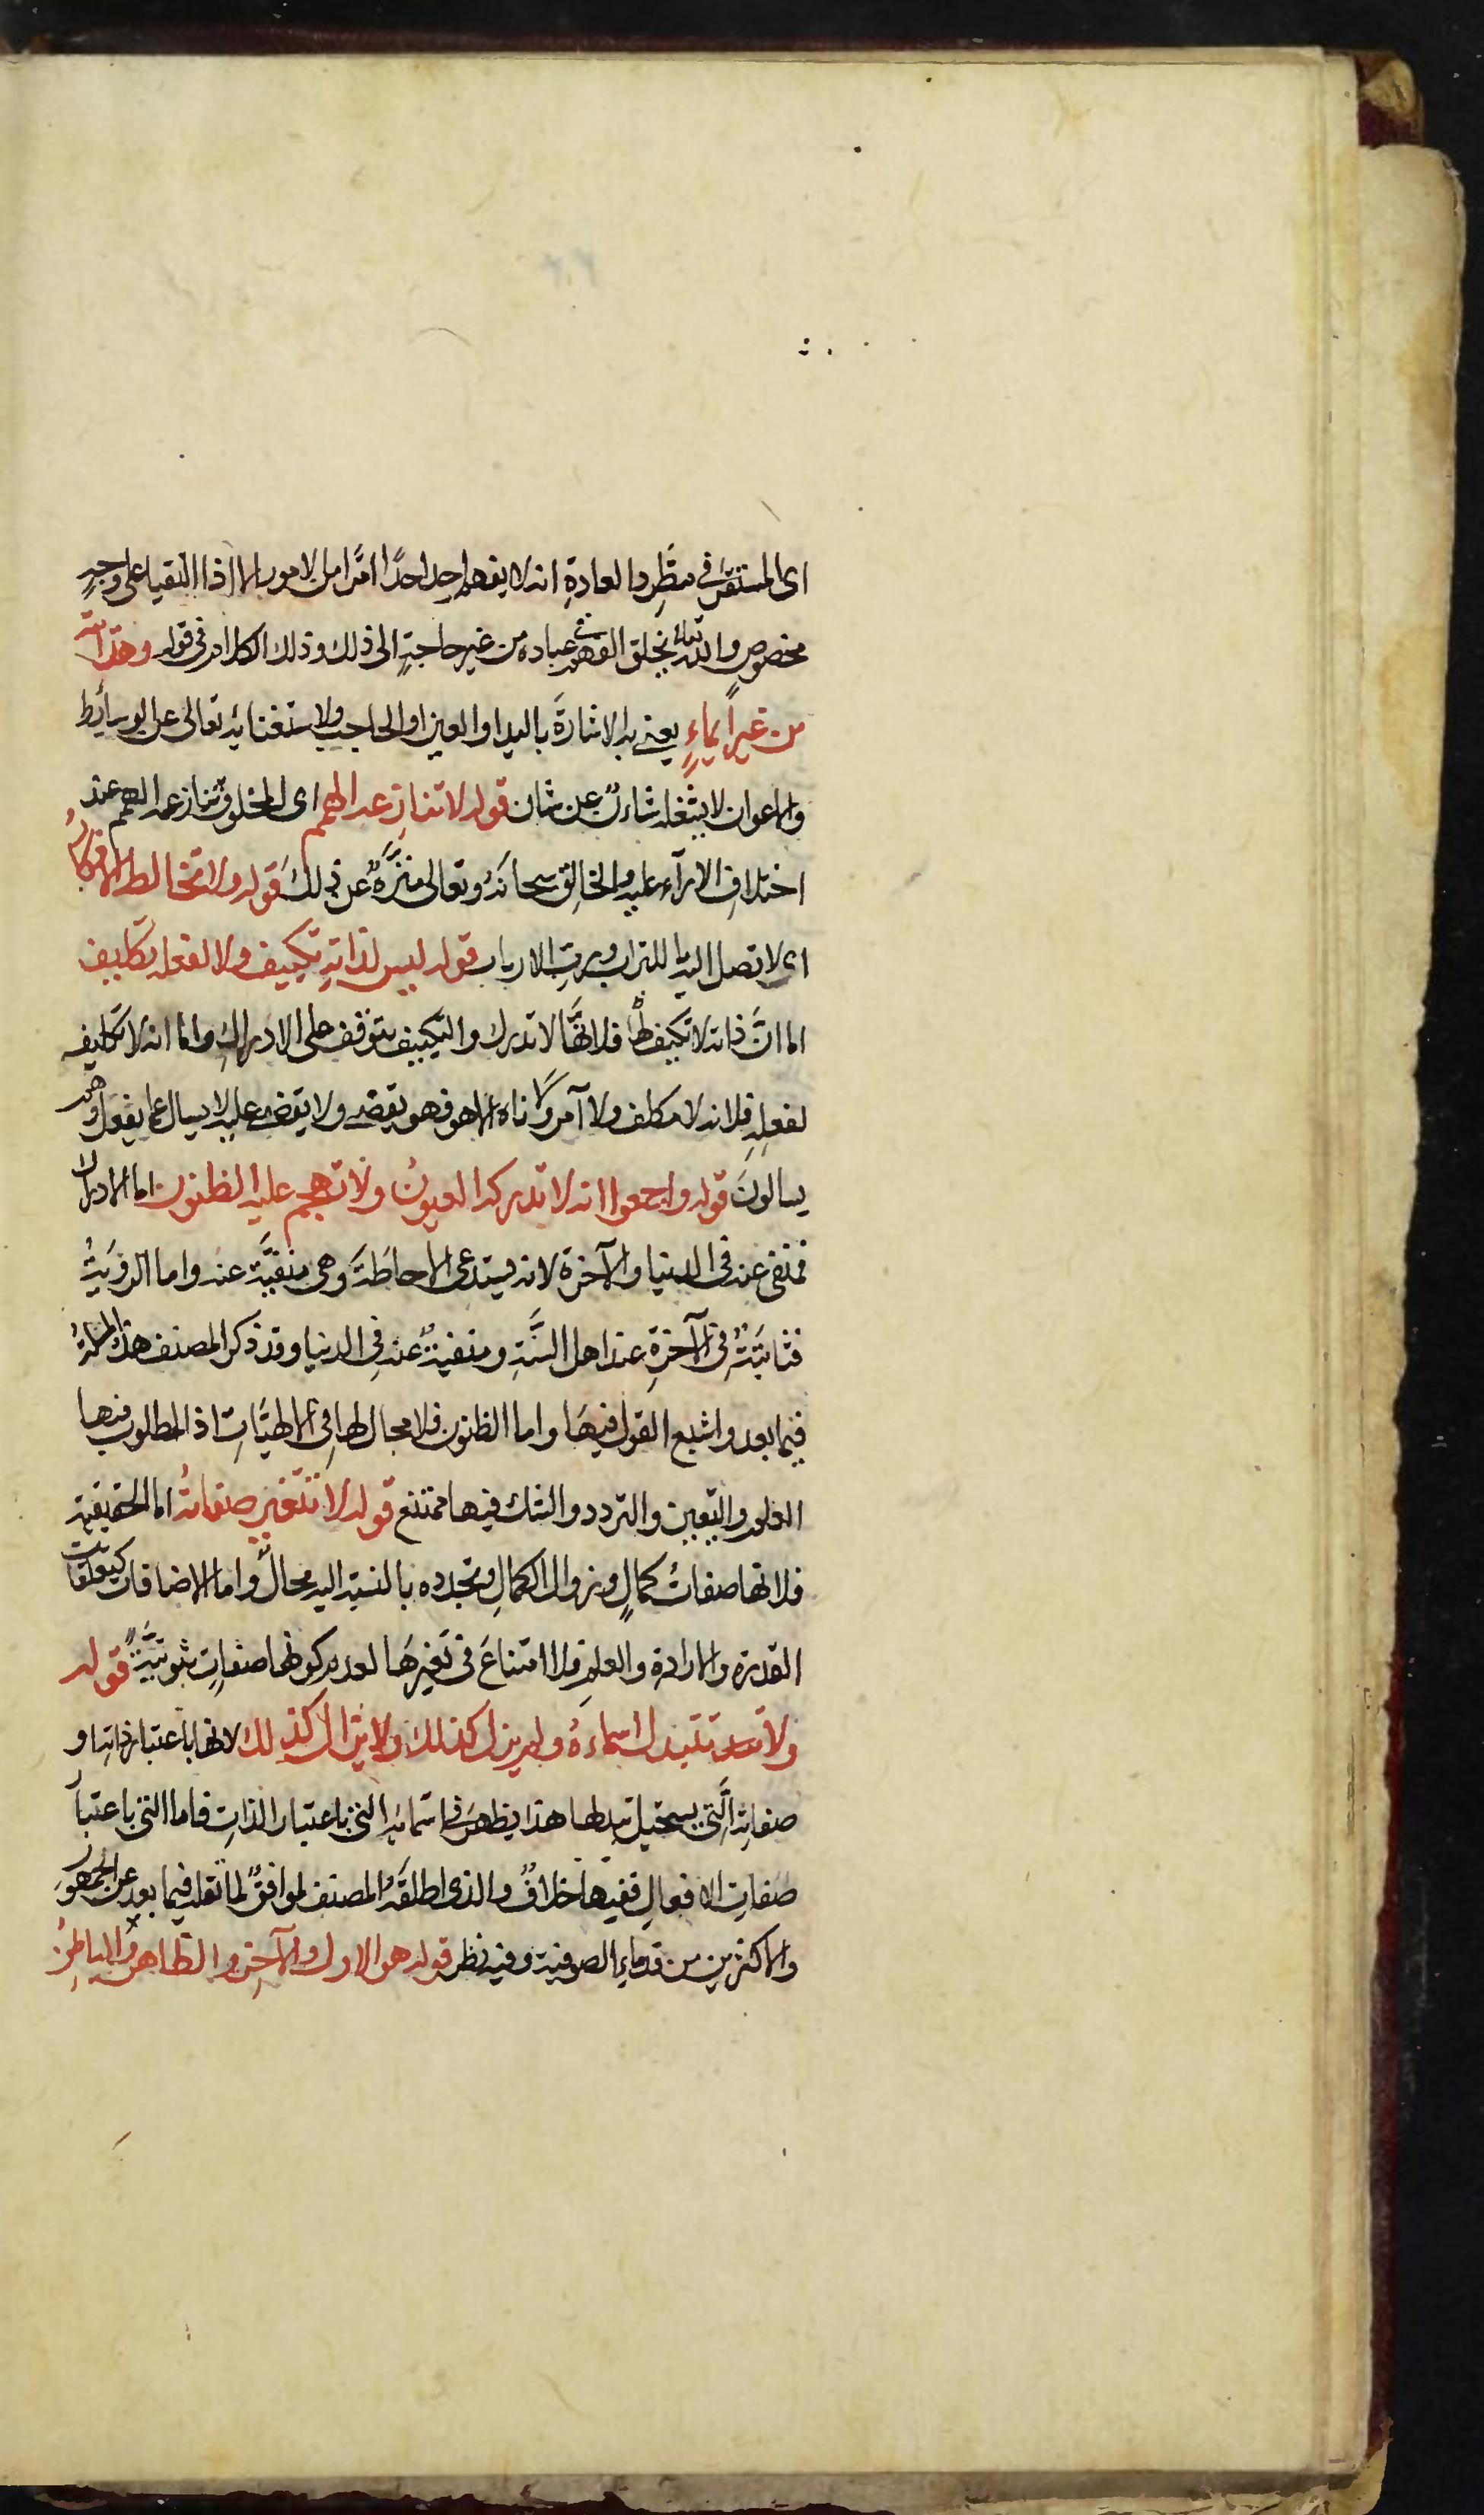 اى المستقر فى مطّرد العادةِ انه لا يفهم احد احدًا امرًا من الامور الا اذا التقيا على وجهٍ
مخصوصٍ والله تعالى يخلق الفهم فى عباده من غير حاجةٍ الى ذلك وكذلك الكلام فى قوله
من غير ايماءٍ يعنى به الاشارة باليد او العين او الحاجب ولاستغنائه تعالى عن الوسائط
والاعوان لا يشغله شاءن عن شان قوله لا تنازعه الهمم اى المخلوق تنازعه الهمم عند
اختلاف الارآء عليه والخالق سبحانه وتعالى منزّه عن ذلك قوله ولا تخالطه الافكار
اى لا تصل اليه ما للتراب ورب الارباب قوله ليس لذاته تكييف ولا لفعله تكليف
اما انّ ذاته لا تكيف لها فلانّها لا تدرك والتكييف يتوقف على الادراك واما انه لا تكليف
لفعله فلانه لا مكلف ولا آمر ولا ناه الا هو فهو يقضى ولا يقضى عليه لا يسال عما يفعل وهم
يسالون قوله واجمعوا انه لا تدركه العيون ولا تهجم عليه الظنون اما الادراك
فمنفى عنه فى الدنيا والآخرة لانه يستدعى الاحاطة وهى منفيّة عنه واما الرؤية
فثابتة فى الآخرة عند اهل السنّة ومنفية عنه فى الدنيا وقد ذكر المصنف هذه المسئلة
فيما بعد واشبع القول فيها واما الظنون فلا مجال لها فى الالهيّات اذ المطلوب فيها
العلم واليقين والتردد والشك فيها ممتنع قوله لا تتغير صفاته اما الحقيقية
فلانها صفات كمالٍ وزوال الكمال وتجدده بالنسبة اليه محال واما الاضافات كتعلقات
القدرة والارادة والعلم فلا امتناع فى تغيرها لعدم كونها صفاتٍ ثبوتيّة قوله
ولا تتبدل اسماءه ولم يزل كذلك ولا يزال كذلك لانها باعتبار ذاته او
صفاته الّتى يستحيل تبدلها هذا يظهر فى اسمائه التى باعتبار الذات فاما التى باعتبار
صفات الافعال ففيها خلافٌ والذى اطلقه المصنف موافق لما نقله فيما بعد عن الجمهور
والاكثرين من قدماء الصوفية وفيه نظر قوله هو الاول والآخر والظاهر والباطن